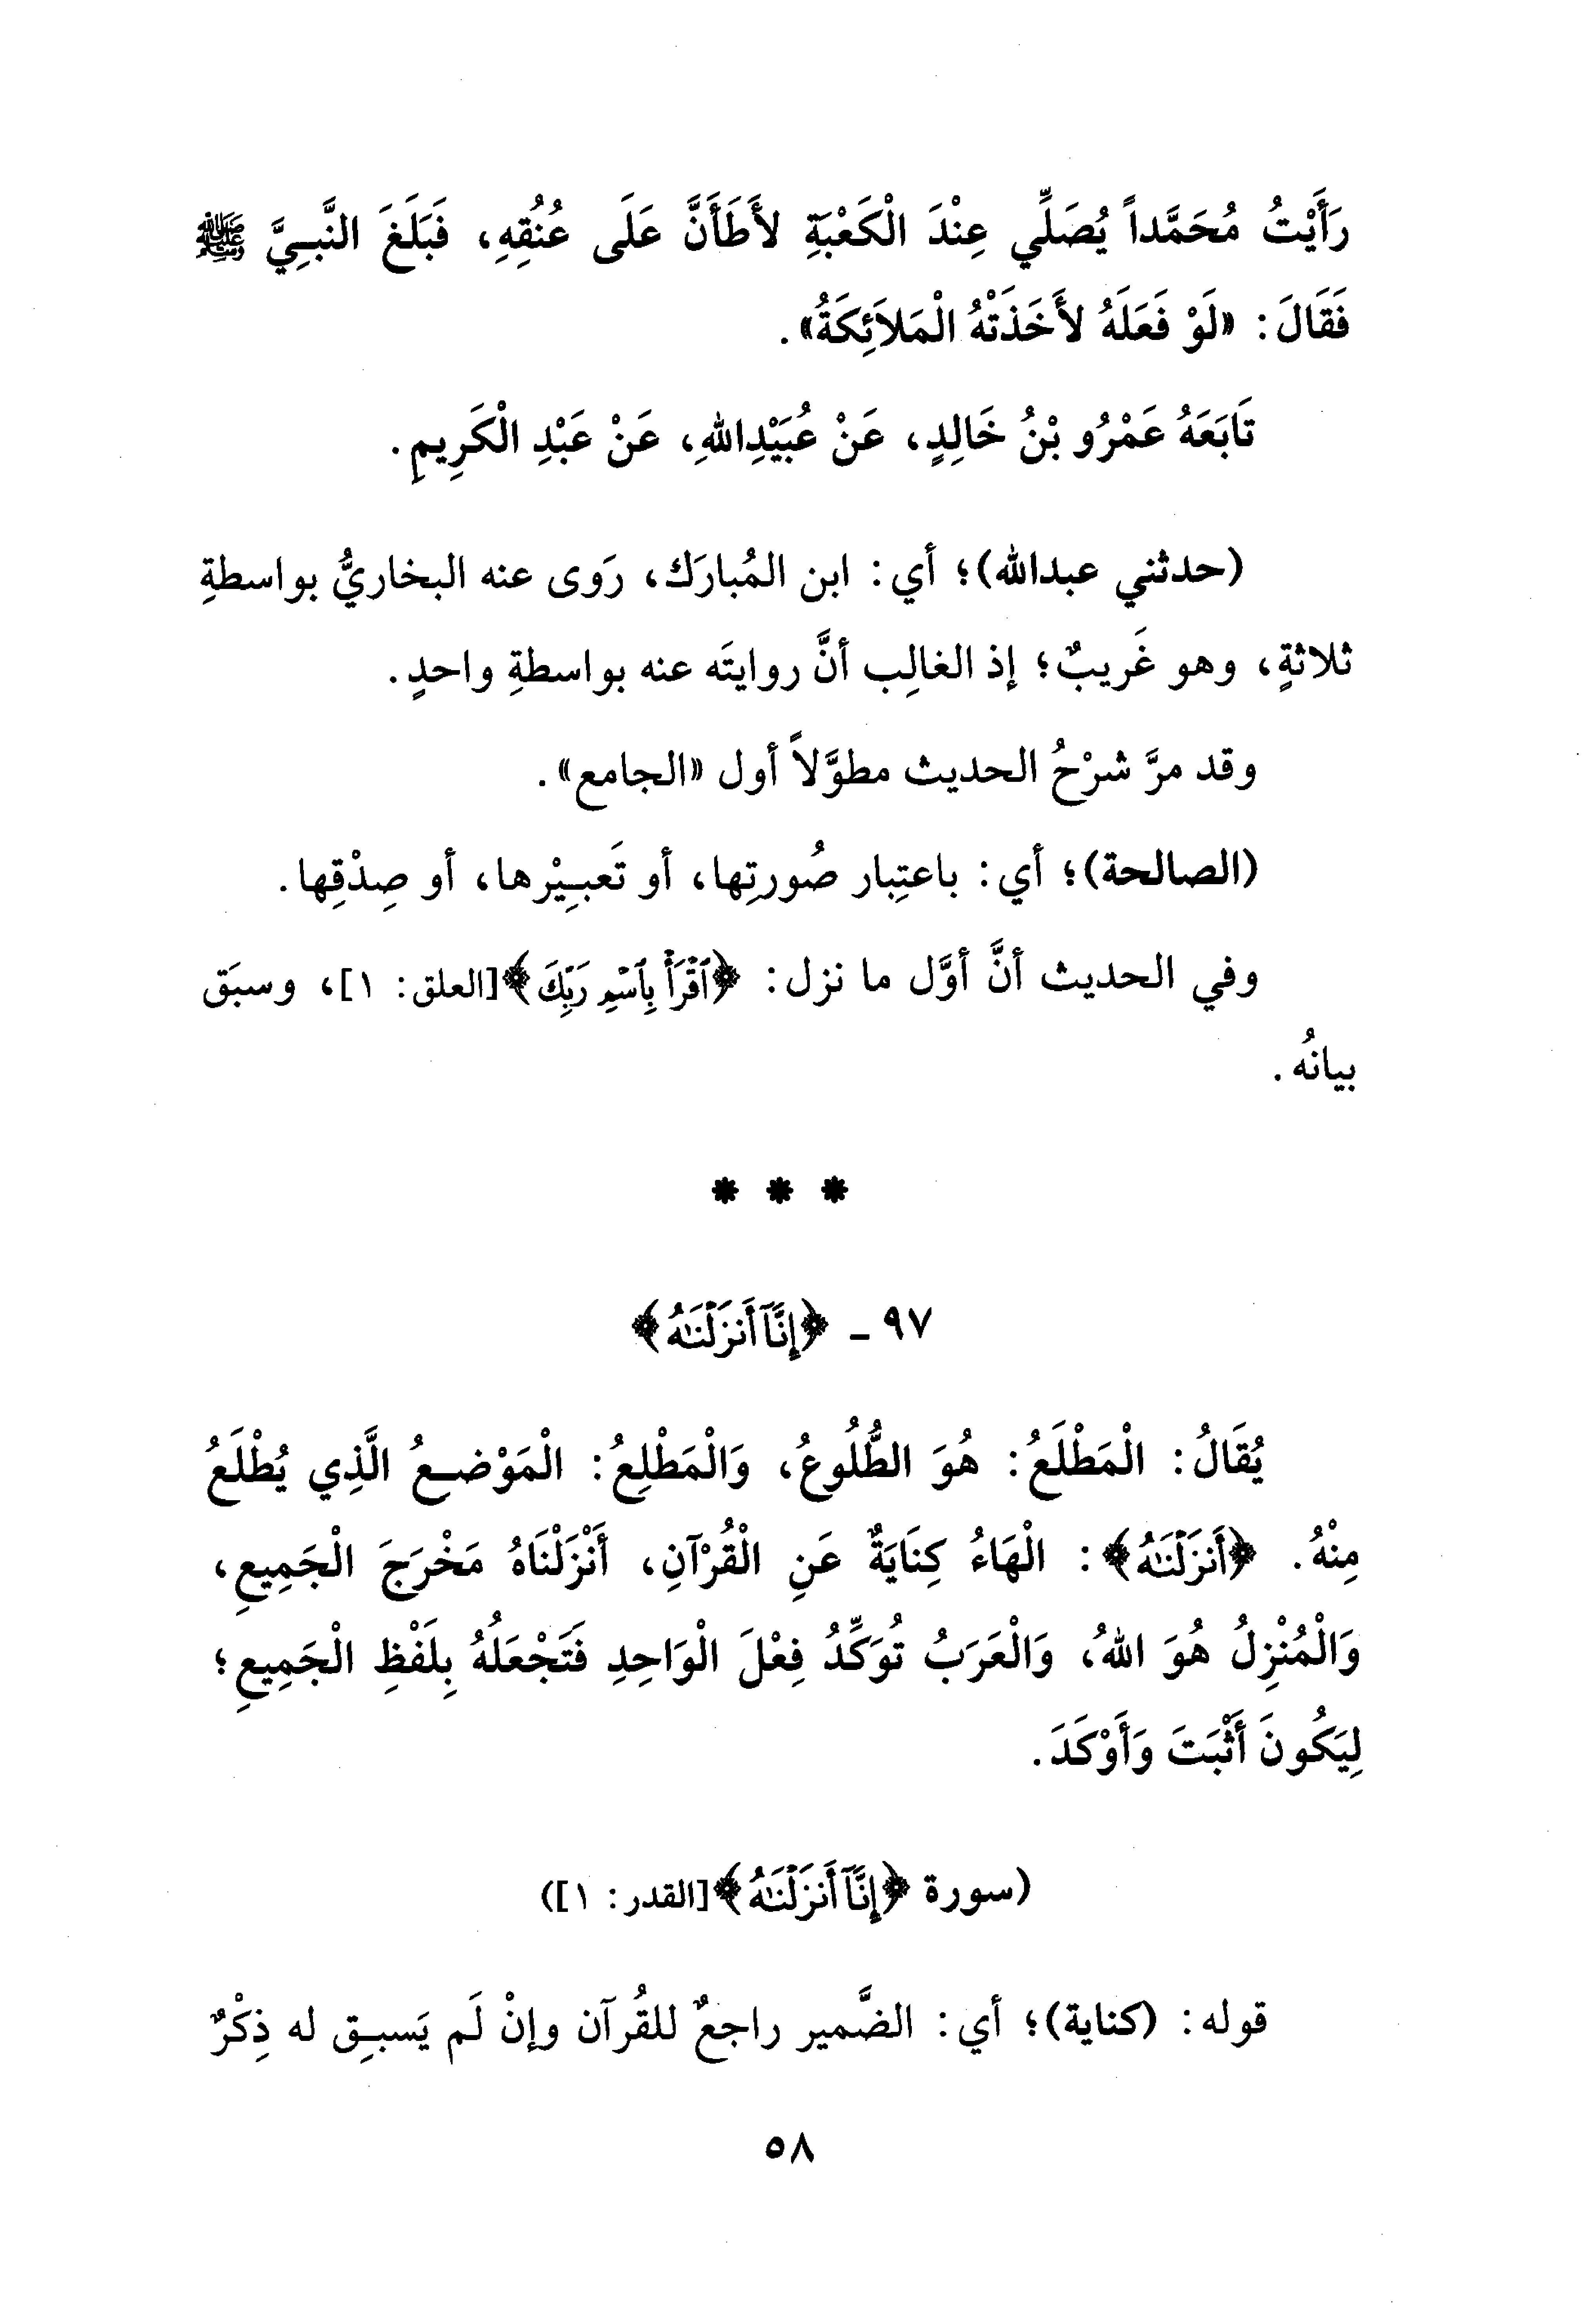 رَأَيْتُ مُحَمَّداً يُصَلِّي عِنْدَ الْكَعْبَةِ لأَطَأَنَّ عَلَى عُنُقِهِ، فَبَلَغَ النَّبِيَّ ﷺ
فَقَالَ: «لَوْ فَعَلَهُ لأَخَذَتْهُ الْمَلاَئِكَةُ».
تَابَعَهُ عَمْرُو بْنُ خَالِدٍ، عَنْ عُبَيْدِاللهِ، عَنْ عَبْدِ الْكَرِيمِ.
(حدثني عبدالله)؛ أي: ابن المُبارَك، رَوى عنه البخاريُّ بواسطةِ
ثلاثةٍ، وهو غَريبٌ؛ إذ الغالِب أنَّ روايتَه عنه بواسطةِ واحدٍ.
وقد مرَّ شرْحُ الحديث مطوَّلاً أول «الجامع».
(الصالحة)؛ أي: باعتِبار صُورتِها، أو تَعبِيْرها، أو صِدْقِها.
وفي الحديث أنَّ أوَّل ما نزل: ﴿ٱقْرَأْ بِٱسْمِ رَبِّكَ﴾[العلق: ١]، وسبَق
بيانُه.
* * *
٩٧ - ﴿إِنَّآ أَنزَلْنَٰهُ﴾
يُقَالُ: الْمَطْلَعُ: هُوَ الطُّلُوعُ، وَالْمَطْلِعُ: الْمَوْضِعُ الَّذِي يُطْلَعُ
مِنْهُ. ﴿أَنزَلْنَٰهُ﴾: الْهَاءُ كِنَايَةٌ عَنِ الْقُرْآنِ، أَنْزَلْنَاهُ مَخْرَجَ الْجَمِيعِ،
وَالْمُنْزِلُ هُوَ اللهُ، وَالْعَرَبُ تُوَكِّدُ فِعْلَ الْوَاحِدِ فَتَجْعَلُهُ بِلَفْظِ الْجَمِيعِ؛
لِيَكُونَ أَثْبَتَ وَأَوْكَدَ.
(سورة ﴿إِنَّآ أَنزَلْنَٰهُ﴾[القدر: ١])
قوله: (كناية)؛ أي: الضَّمير راجعٌ للقُرآن وإنْ لَم يَسبِق له ذِكْرٌ
٥٨